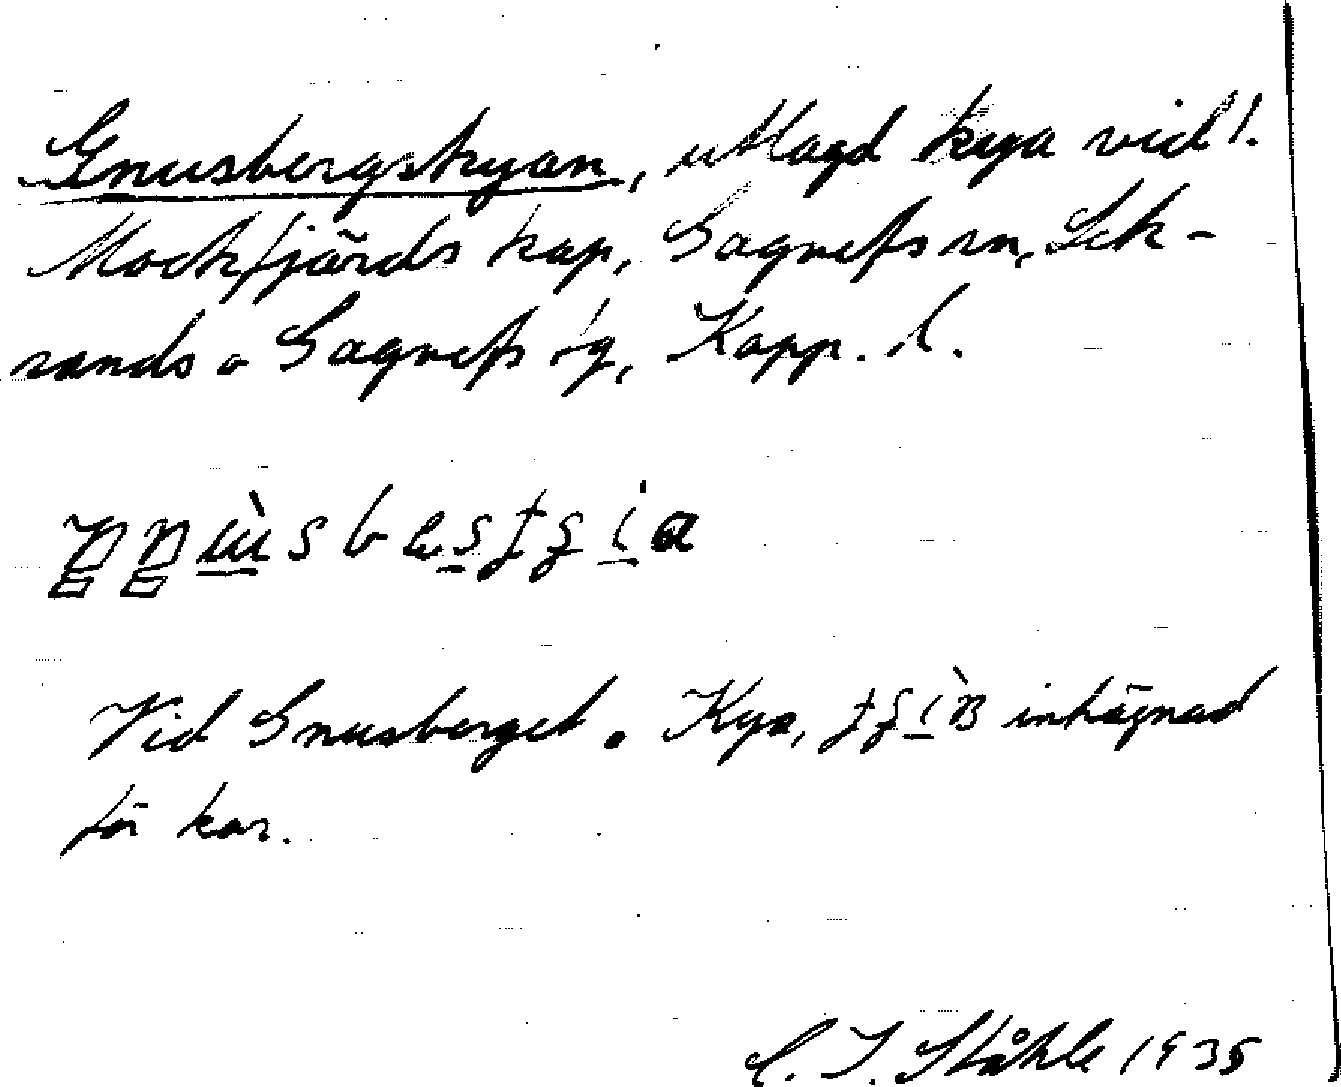 Gnusbergskyan, utlagd kya vid
Mockfjärds kap, Gagnefs sn, Lek-
sands o Gagnefs tg, Kopp. l.
Vid Gnusberget. Kya, inhägnad
för kor.
C. I. Ståhle 1935